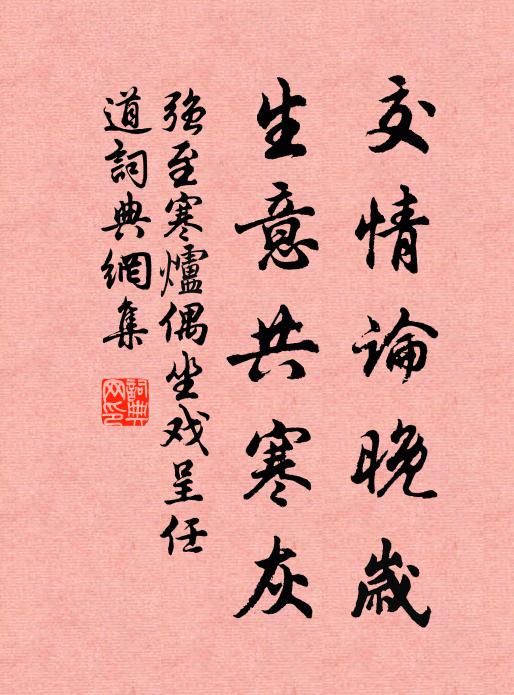 交情论晚岁
生意共寒灰
强至寒爐偶坐戏呈任
道詞典網集
詞典
网印